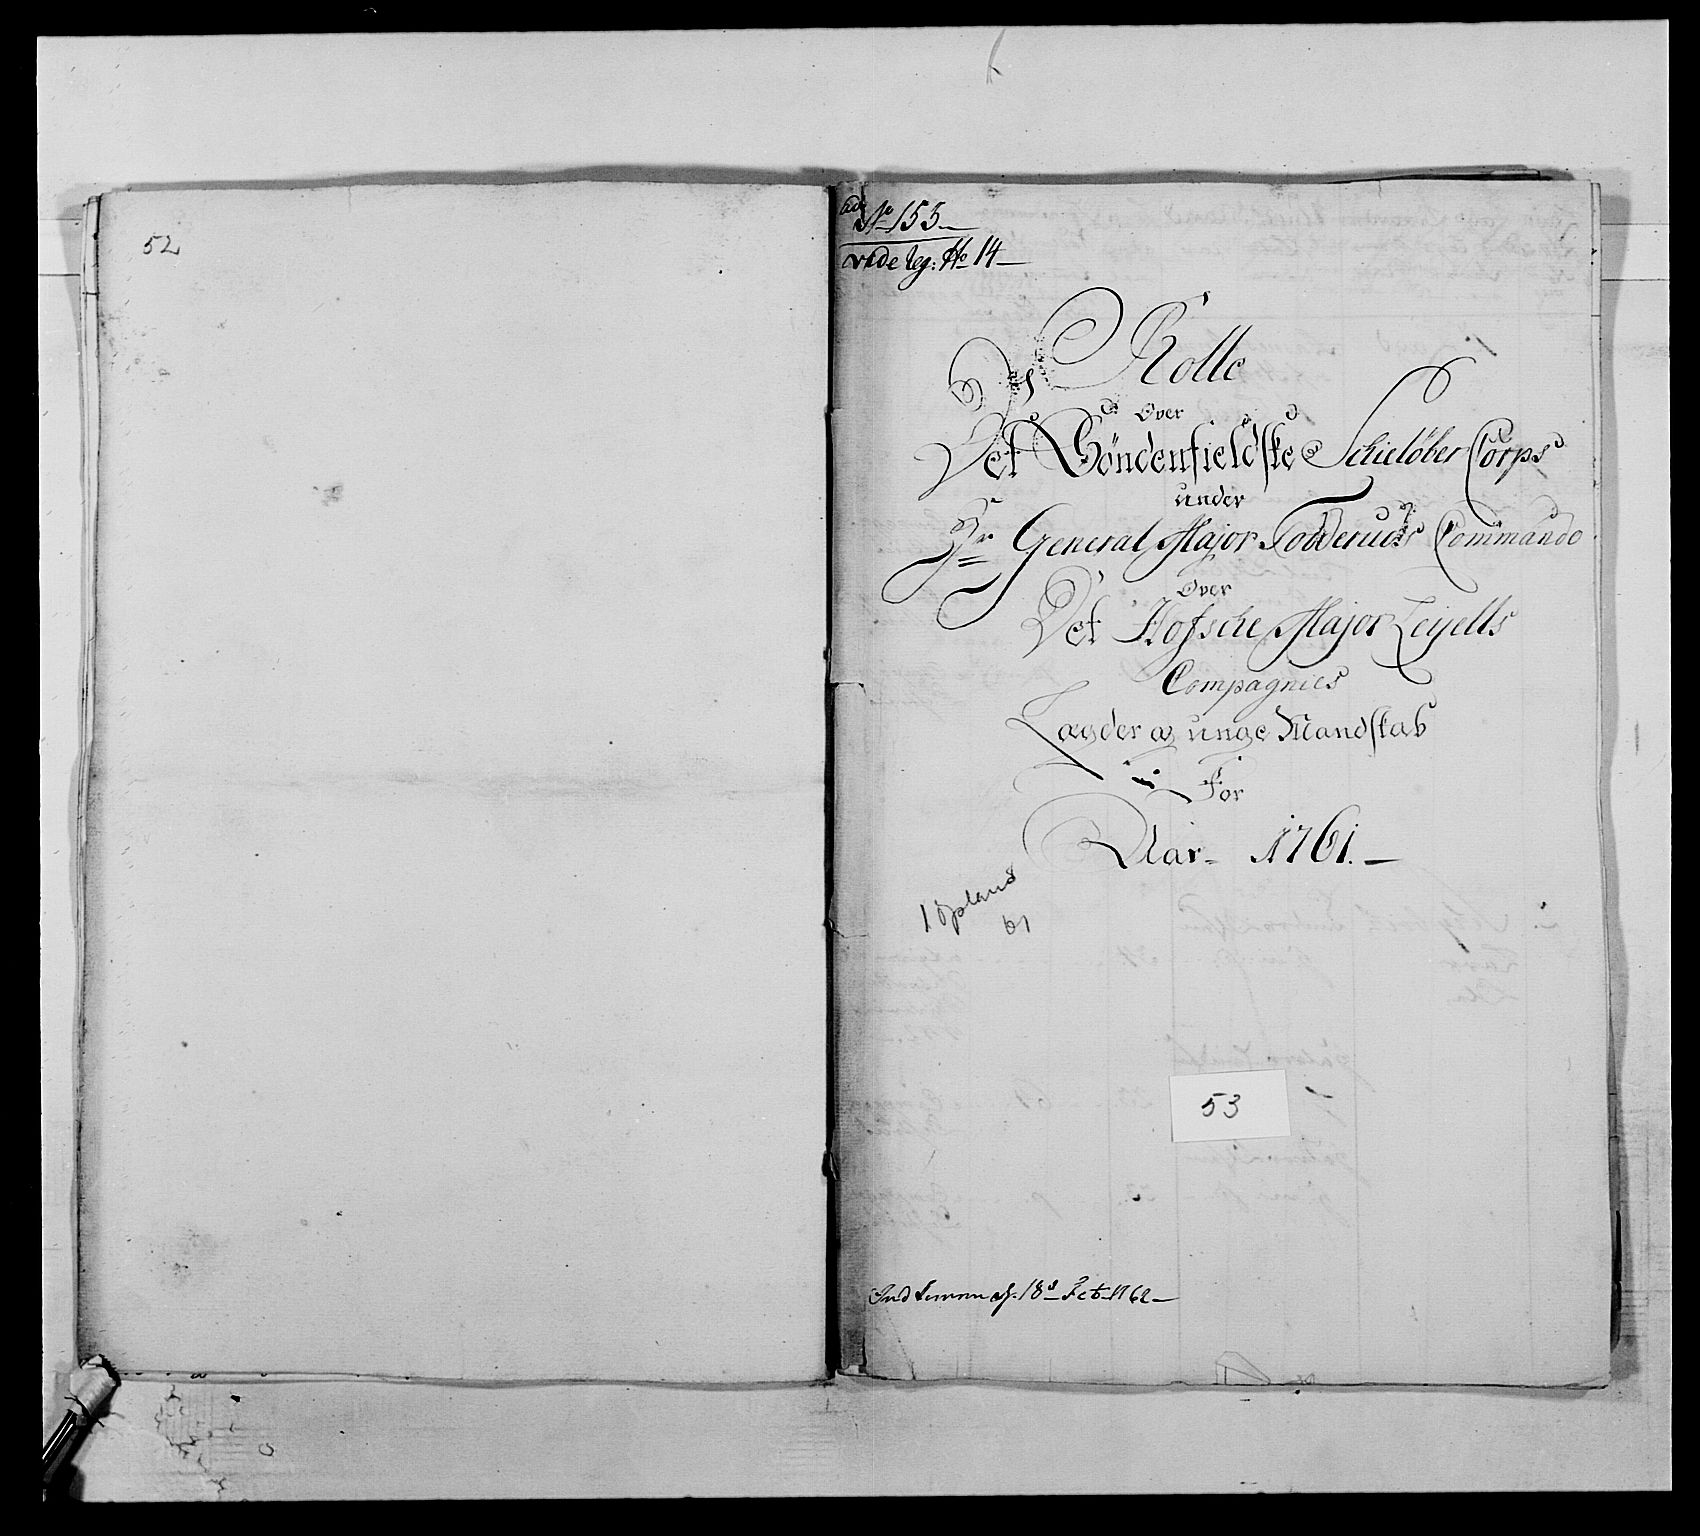 52
ad No 155.
vide leg: No 14
Rolle
Over
Det Söndenfieldske Schielöber Corps
under
Hr General Major Todderuds Commando
Over
Det Hofsche Major Zeyells
Compagnies
Lægder og unge Mandskab
For
Aar 1761.
1 Opland
61
53
Ind kommen 18d Feb 1762